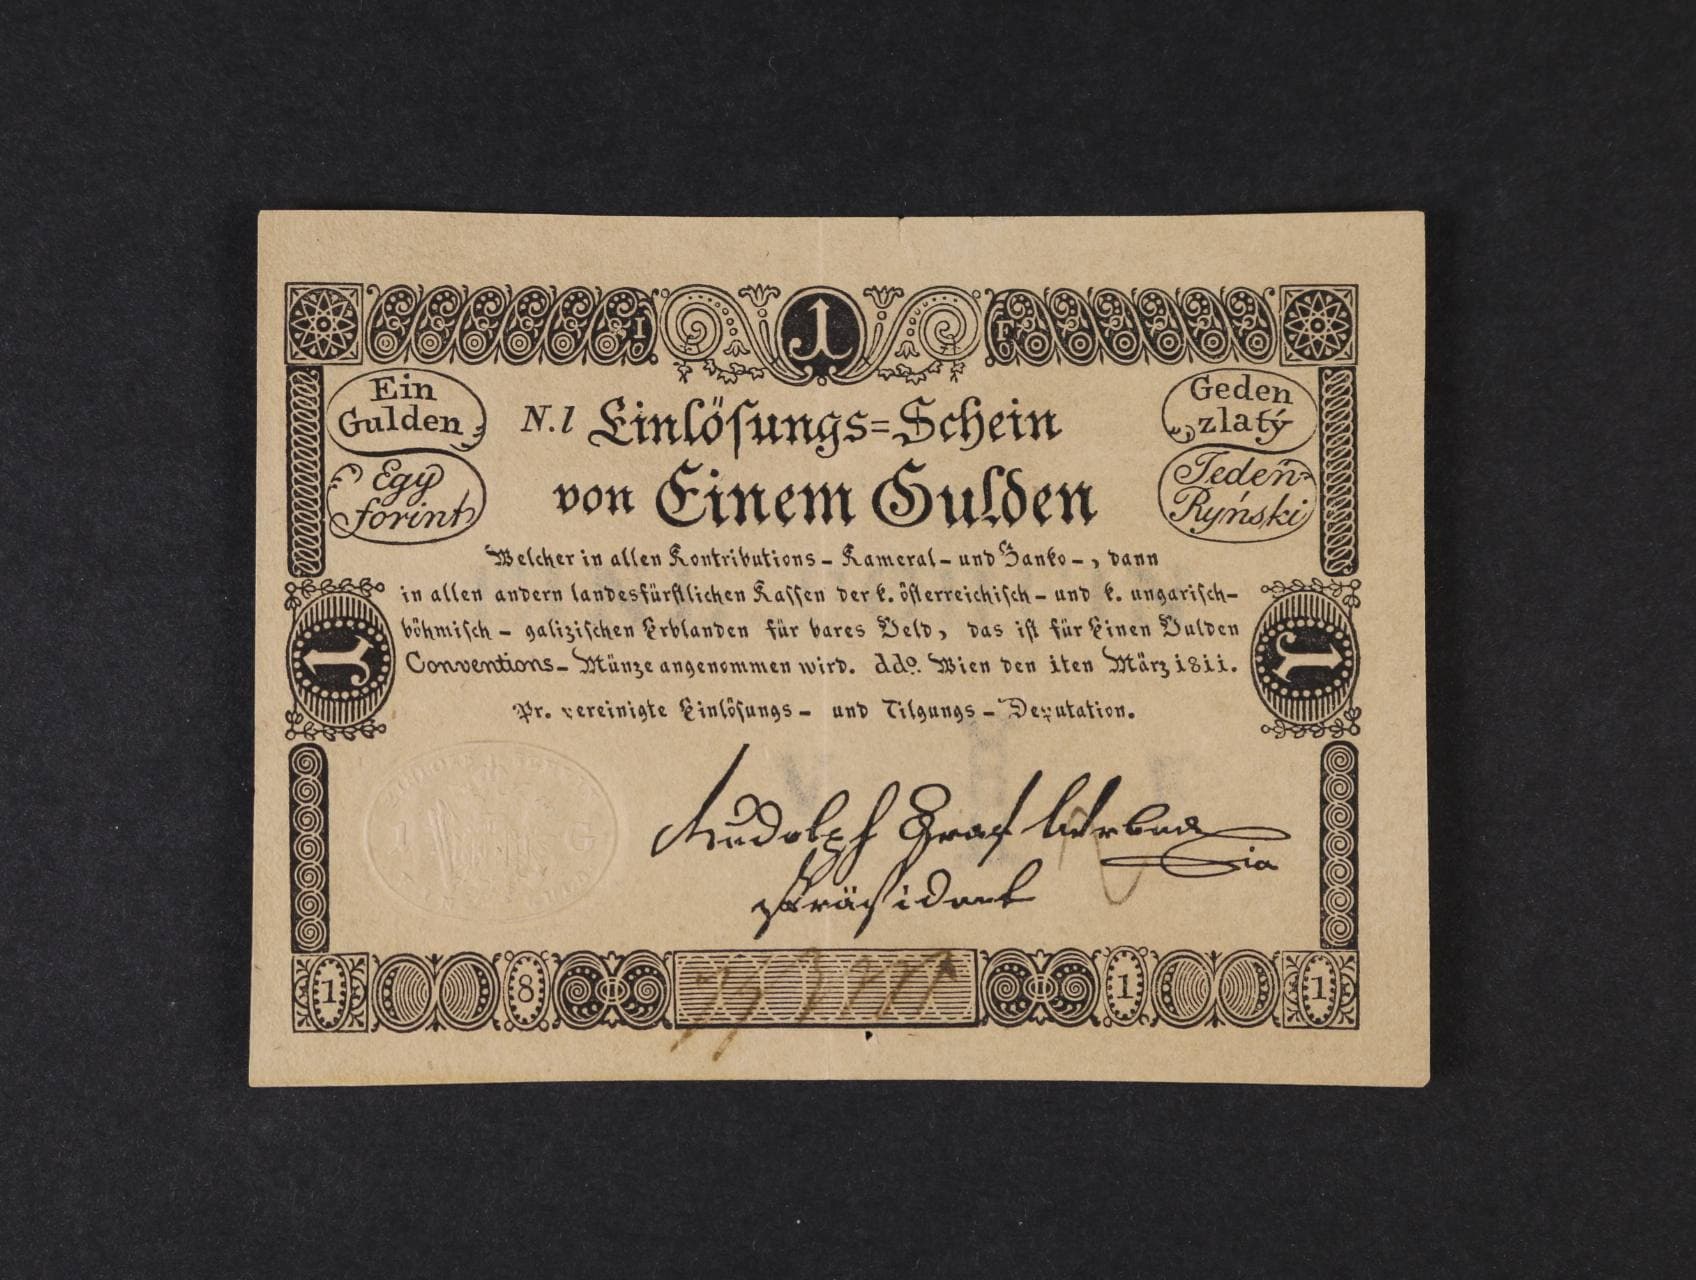 I
1
F
Ein
Gulden
Egy
forint
Geden
zlatý
Jeden
Ryński
N.1 Einlösungs=Schein
von Einem Gulden
Welcher in allen Kontributions- Kameral- und Banko-, dann
in allen andern landesfürstlichen Kassen der k. österreichisch- und k. ungarisch-
böhmisch- galizischen Erblanden für bares Geld, das ist für Einen Gulden
Conventions- Münze angenommen wird. ddo. Wien den 1ten März 1811.
Pr. vereinigte Einlösungs- und Tilgungs- Deputation.
1
1
1 G
Rudolph Graf Wrbna
Präsident
1 8 1 1